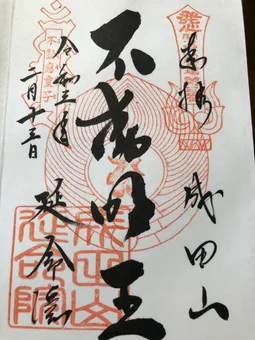 奉拝
成田山
不動明王
令和三年
二月十三日
延命院
成田山
延命院